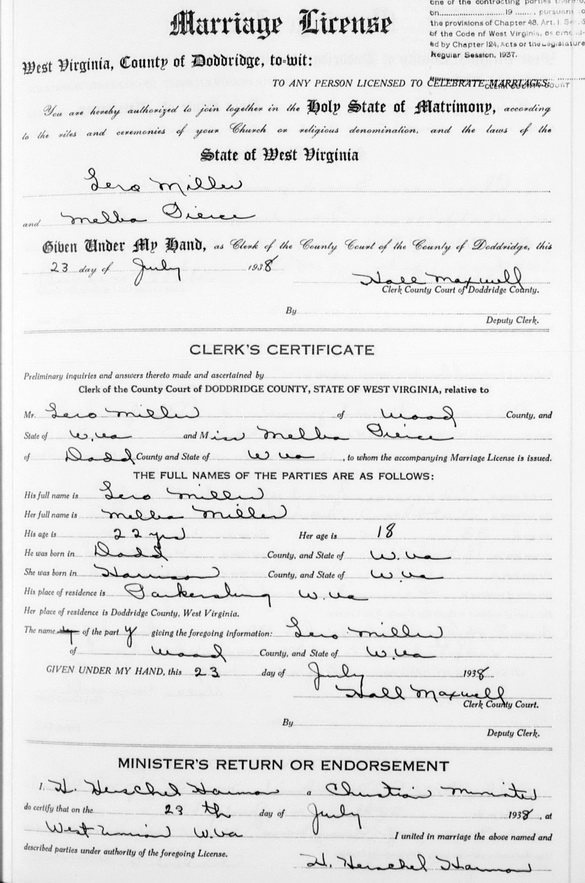 Marriage License
one of the contracting parties thereto,
on 19 , pursuant to
the provisions of Chapter 48, Art. 1
of the Code of West Virginia, as
ed by Chapter 124, Acts of the Legislature
Regular Session, 1937.
CLERK COUNTY COURT
West Virginia, County of Doddridge, to-wit:
TO ANY PERSON LICENSED TO CELEBRATE MARRIAGES:
You are hereby authorized to join together in the Holy State of Matrimony, according
to the rites and ceremonies of your Church or religious denomination, and the laws of the
State of West Virginia
Lero Miller
and Melba Pierce
Given Under My Hand, as Clerk of the County Court of the County of Doddridge, this
23 day of July 1938
Hall Maxwell
Clerk County Court of Doddridge County.
By
Deputy Clerk.
CLERK'S CERTIFICATE
Preliminary inquiries and answers thereto made and ascertained by
Clerk of the County Court of DODDRIDGE COUNTY, STATE OF WEST VIRGINIA, relative to
Mr. Lero Miller of Wood County, and
State of W.Va and Miss Melba Pierce
of Dodd County and State of W Va , to whom the accompanying Marriage License is issued.
THE FULL NAMES OF THE PARTIES ARE AS FOLLOWS:
His full name is Lero Miller
Her full name is Melba Miller
His age is 22 yrs Her age is 18
He was born in Dodd County, and State of W.Va
She was born in Harrison County, and State of W.Va
His place of residence is Parkersburg W.Va
Her place of residence is Doddridge County, West Virginia.
The name of the party giving the foregoing information: Lero Miller
of Wood County, and State of W.Va
GIVEN UNDER MY HAND, this 23 day of July 1938
Hall Maxwell
Clerk County Court.
By
Deputy Clerk.
MINISTER'S RETURN OR ENDORSEMENT
I, H. Herschel Harmon a Christian Minister
do certify that on the 23 th day of July 1938, at
West Union W.Va I united in marriage the above named and
described parties under authority of the foregoing License.
H. Herschel Harmon